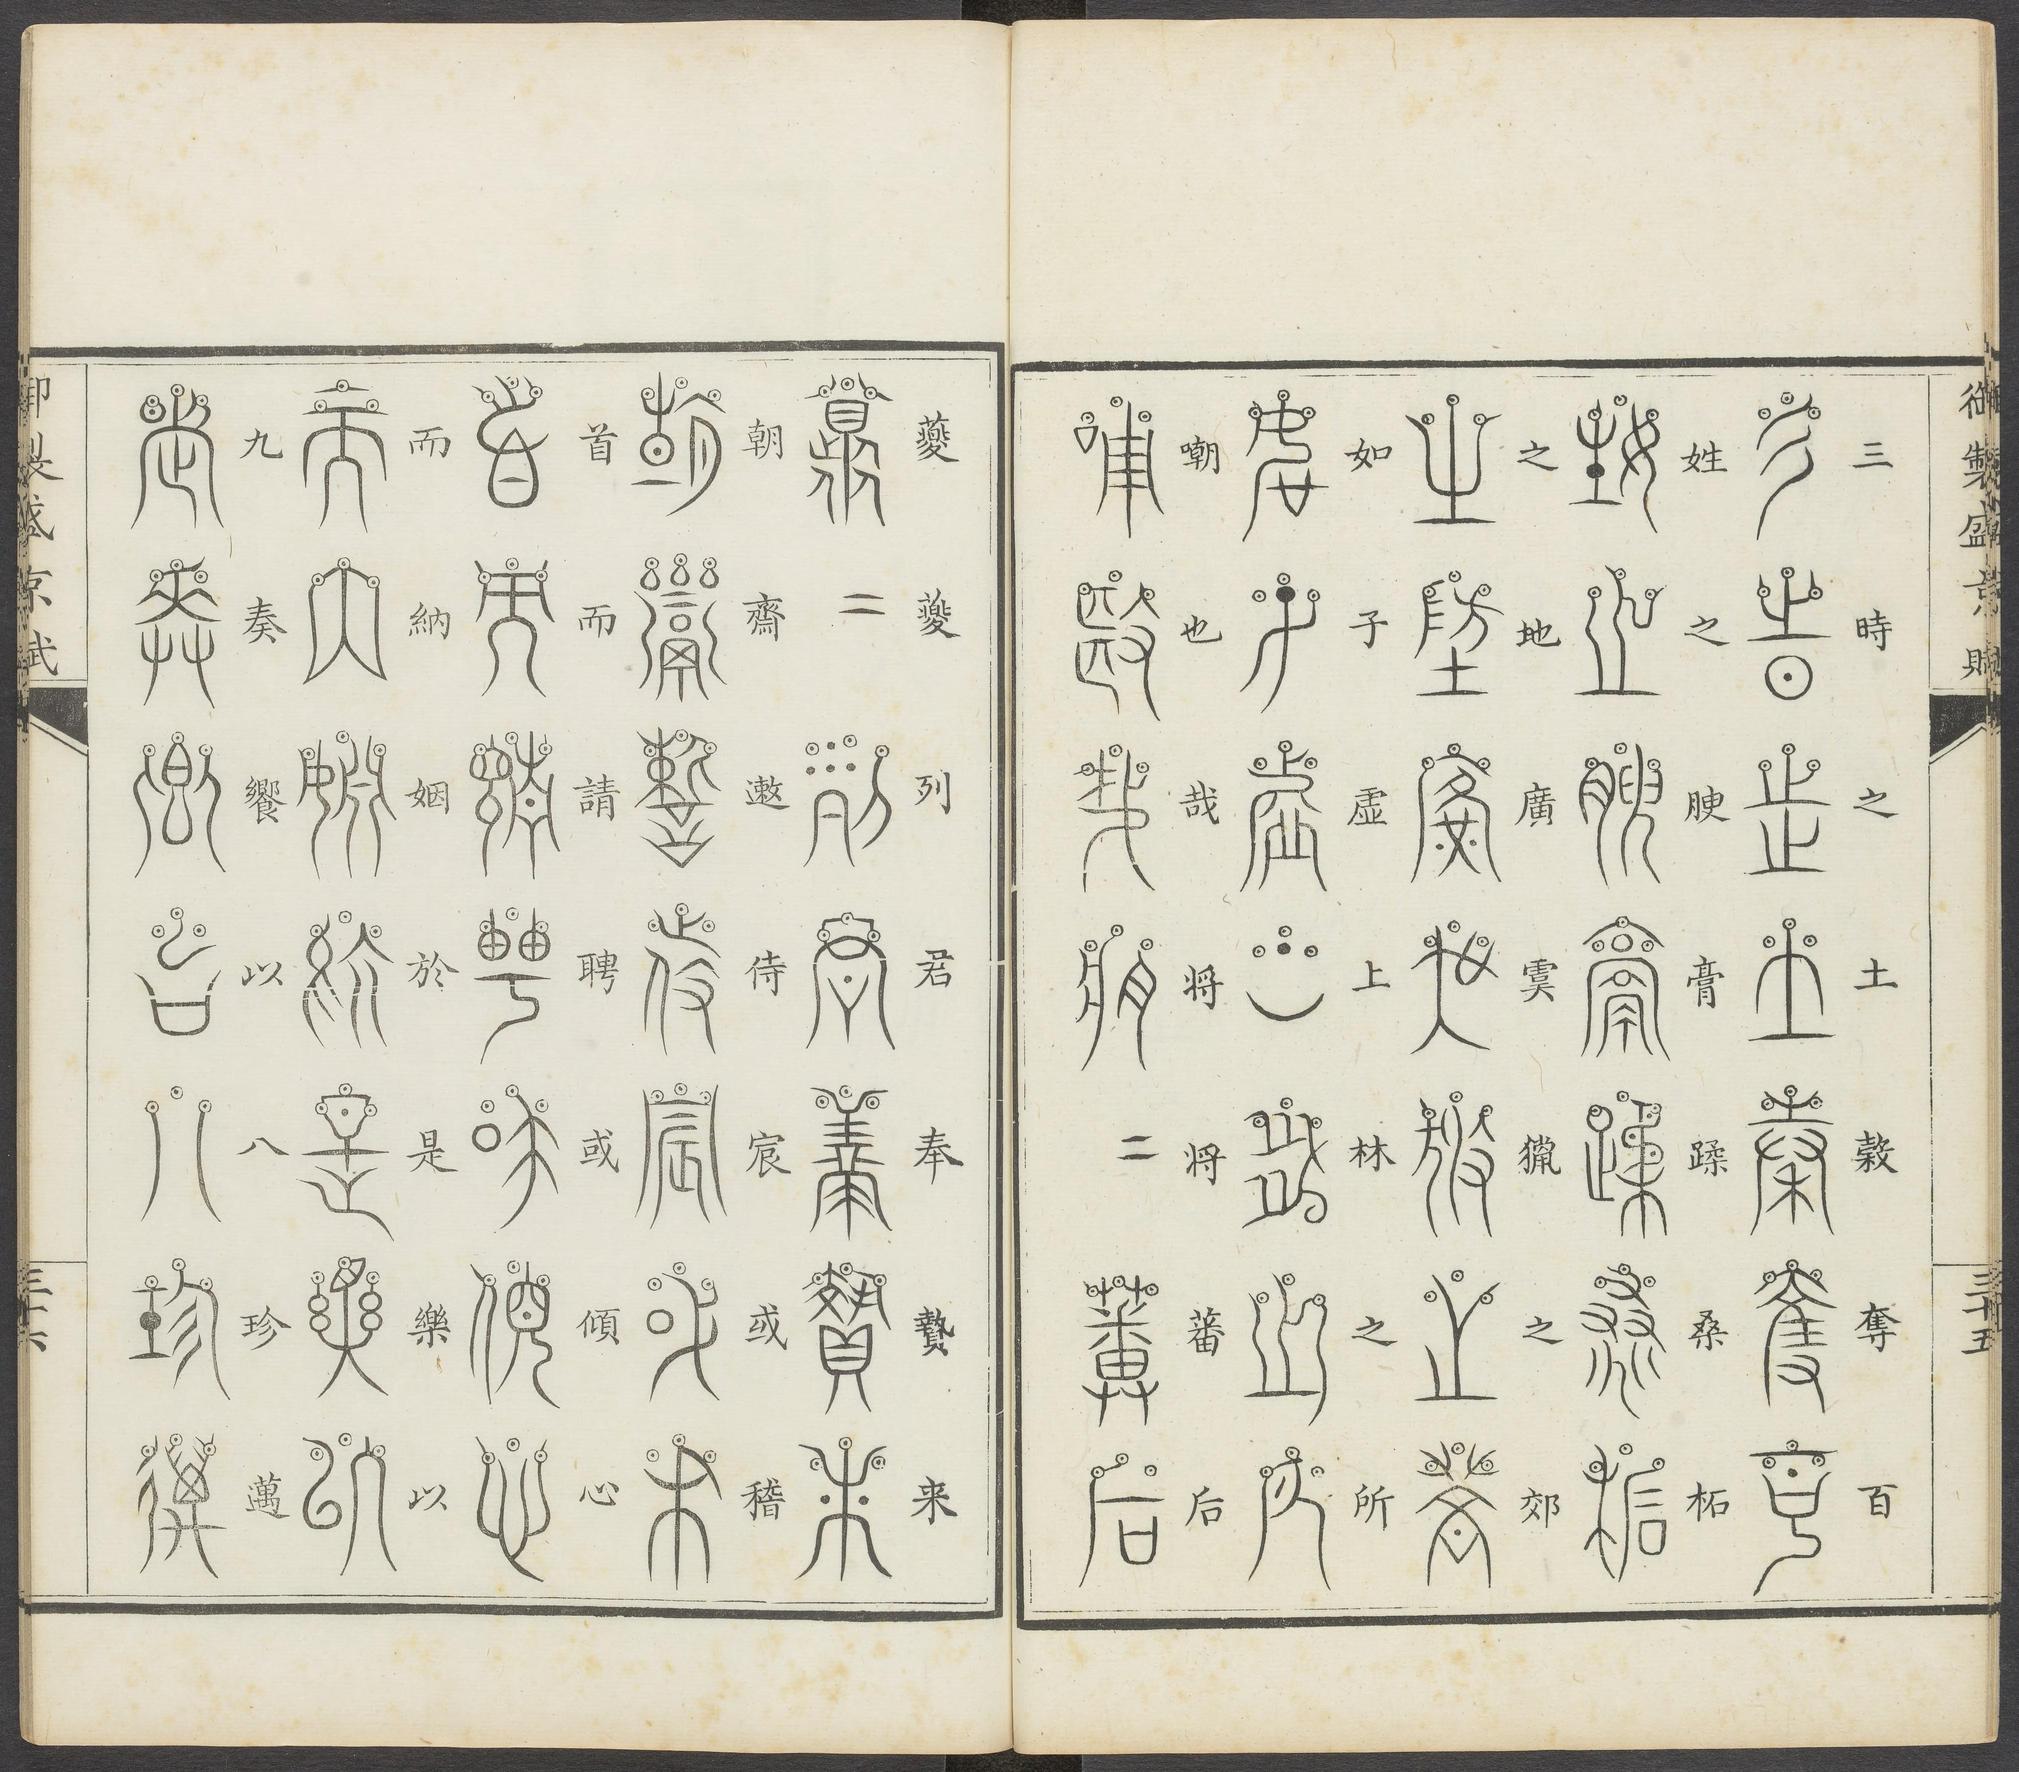 御製盛京賦
三十五
三時之土穀奪百
姓之腴膏蹂桑柘
之地廣虞獵之郊
如子虛上林之所
嘲也哉將將二蕃后
夔夔二列君奉贄来
朝齋遬待宸或稽
首而請聘或傾心
而納姻於是樂以
九奏饗以八珍邁
御製盛京賦
三十六